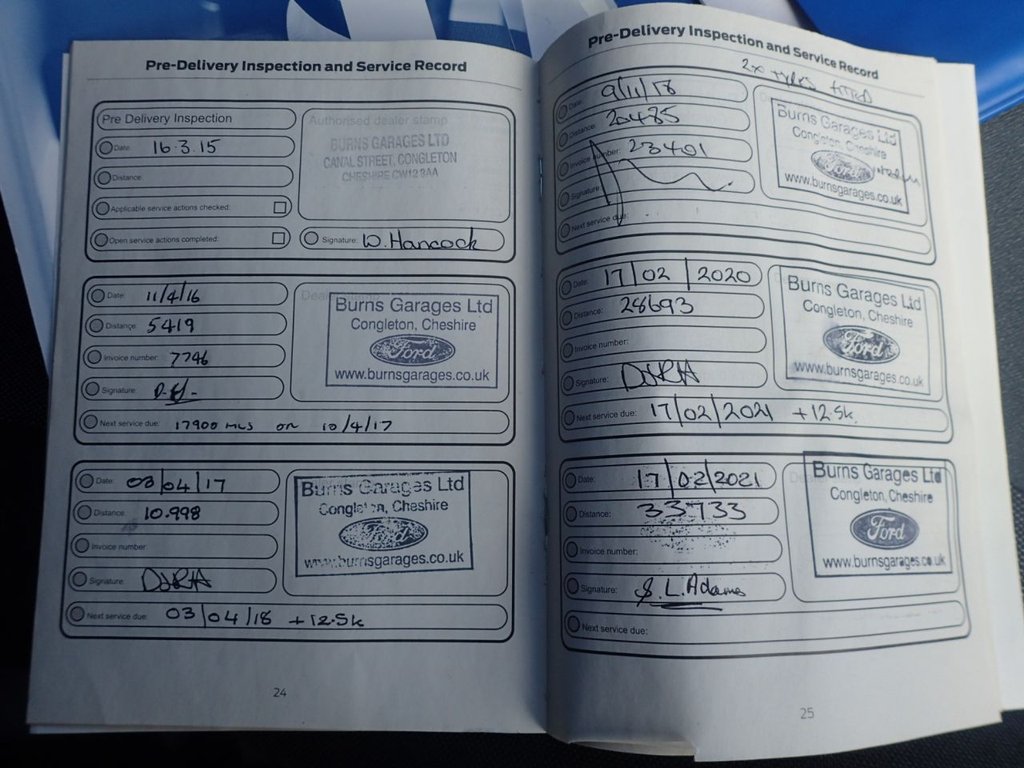 Pre-Delivery Inspection and Service Record
Pre Delivery Inspection
Date: 16.3.15
Distance:
Applicable service actions checked:
Open service actions completed:
Authorised dealer stamp
BURNS GARAGES LTD
CANAL STREET, CONGLETON
CHESHIRE CW12 3AA
Signature: W. Hancock
Date: 11/4/16
Distance: 5419
Invoice number: 7746
Signature:
Next service due: 17900 MLS on 10/4/17
Burns Garages Ltd
Congleton, Cheshire
Ford
www.burnsgarages.co.uk
Date: 03/04/17
Distance: 10.998
Invoice number:
Signature:
Next service due: 03/04/18 +12.5k
Burns Garages Ltd
Congleton, Cheshire
Ford
www.burnsgarages.co.uk
24
Pre-Delivery Inspection and Service Record
2x TYRES FITTED
Date: 9/11/18
Distance: 20485
Invoice number: 23401
Signature:
Next service due:
Burns Garages Ltd
Congleton, Cheshire
Ford
www.burnsgarages.co.uk
Date: 17/02/2020
Distance: 28693
Invoice number:
Signature:
Next service due: 17/02/2021 +12.5k.
Burns Garages Ltd
Congleton, Cheshire
Ford
www.burnsgarages.co.uk
Date: 17/02/2021
Distance: 33733
Invoice number:
Signature: S.L.Adams
Next service due:
Burns Garages Ltd
Congleton, Cheshire
Ford
www.burnsgarages.co.uk
25